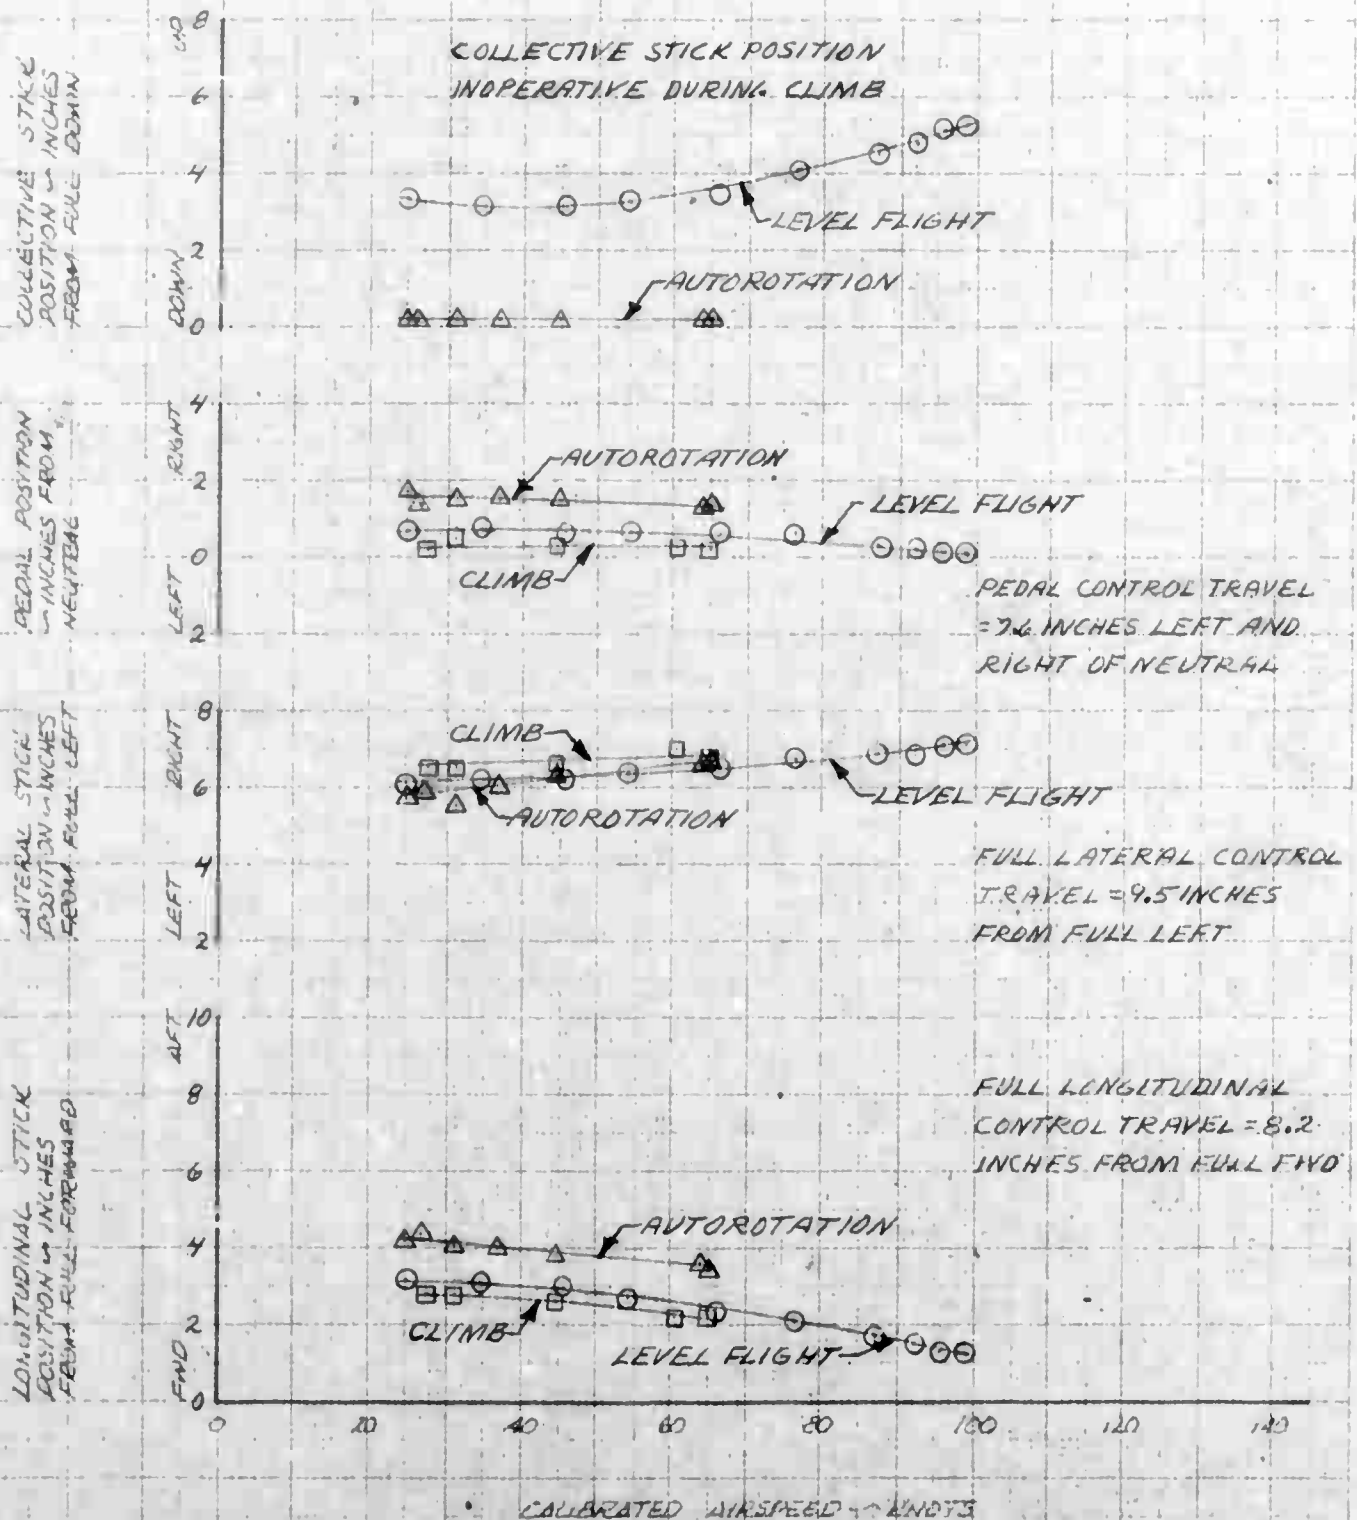 COLLECTIVE STICK
POSITION ~ INCHES
FROM FULL DOWN
UP
DOWN
8
6
4
2
0
COLLECTIVE STICK POSITION
INOPERATIVE DURING CLIMB
LEVEL FLIGHT
AUTOROTATION
PEDAL POSITION
~ INCHES FROM
NEUTRAL
RIGHT
LEFT
4
2
0
2
AUTOROTATION
LEVEL FLIGHT
CLIMB
PEDAL CONTROL TRAVEL
INCHES LEFT AND
RIGHT OF NEUTRAL
LATERAL STICK
POSITION ~ INCHES
FROM FULL LEFT
RIGHT
LEFT
8
6
4
2
CLIMB
LEVEL FLIGHT
AUTOROTATION
FULL LATERAL CONTROL
TRAVEL = 9.5 INCHES
FROM FULL LEFT
LONGITUDINAL STICK
POSITION ~ INCHES
FROM FULL FORWARD
AFT
FWD
10
8
6
4
2
0
FULL LONGITUDINAL
CONTROL TRAVEL = 8.2
INCHES FROM FULL FWD
AUTOROTATION
CLIMB
LEVEL FLIGHT
0 20 40 60 80 100 120 140
CALIBRATED AIRSPEED ~ KNOTS